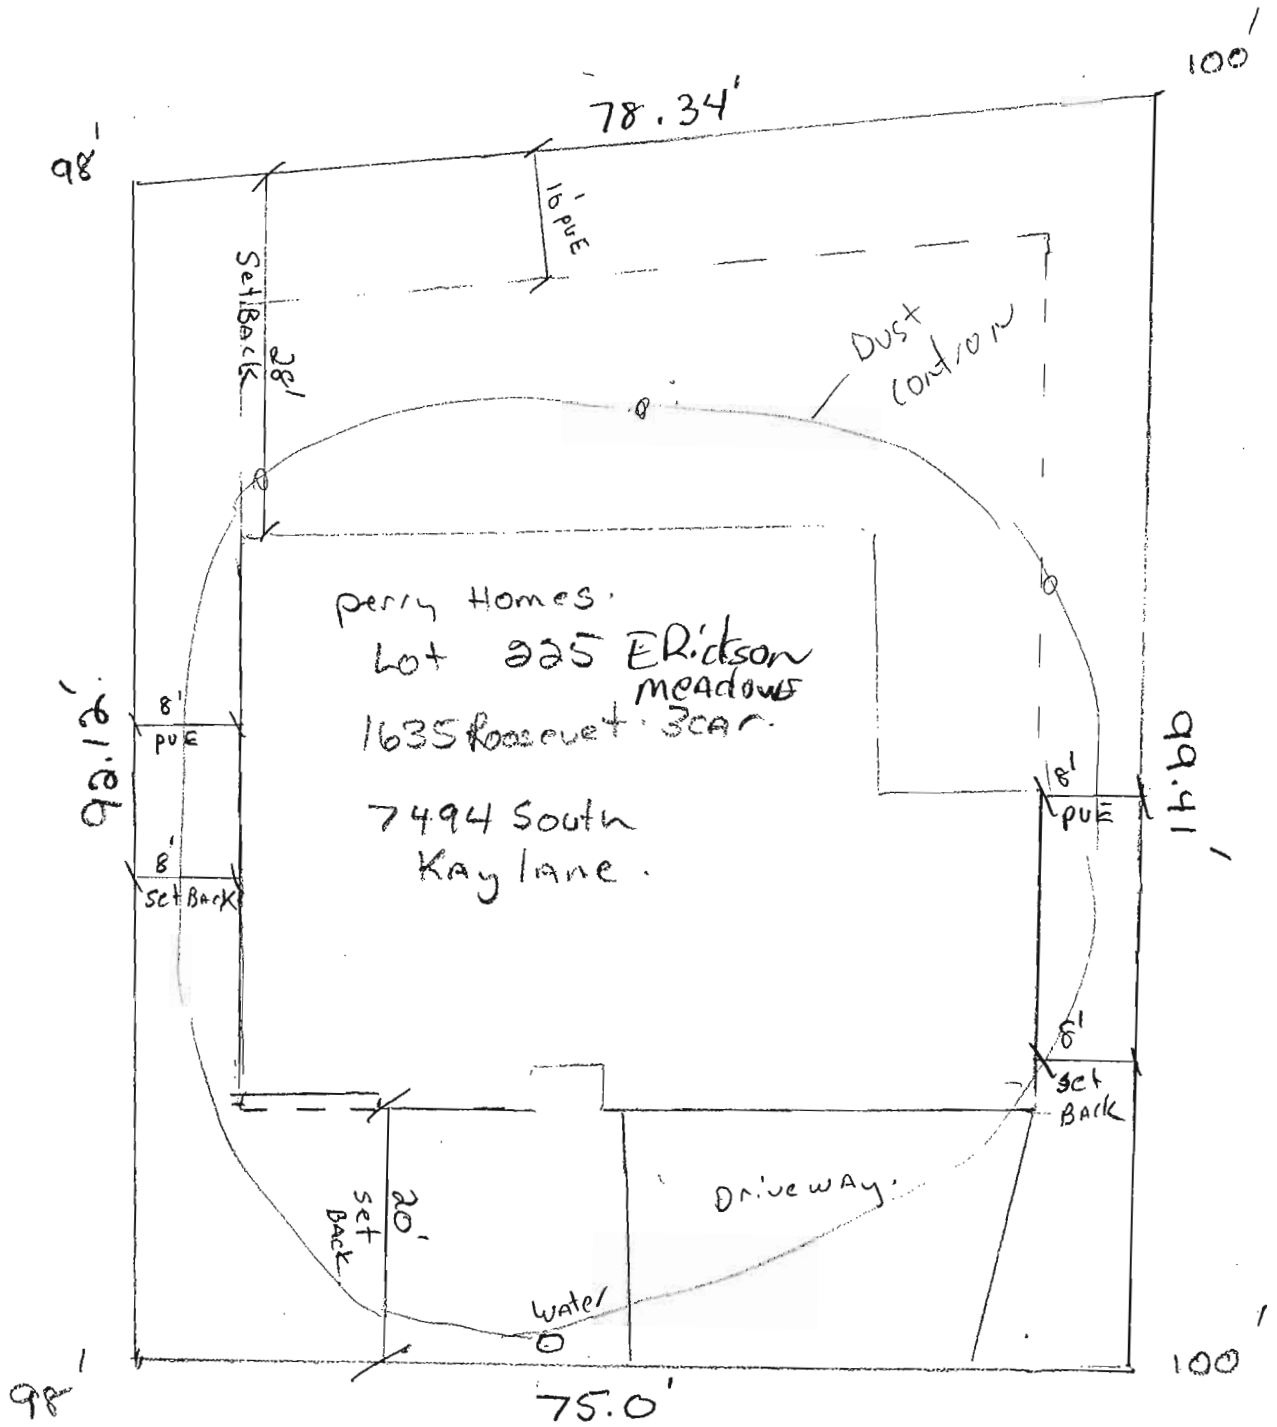 100'
78.34'
98'
16' PUE
Set BACK
28'
Dust
control
perry Homes.
Lot 225 ERickson
meadows
1635 Roosevelt 3car.
7494 South
Kay lane.
92.12'
8'
PUE
8'
Set BACK
8'
PUE
99.41'
8'
set
BACK
20'
set
BACK
Driveway.
Water
98'
75.0'
100'